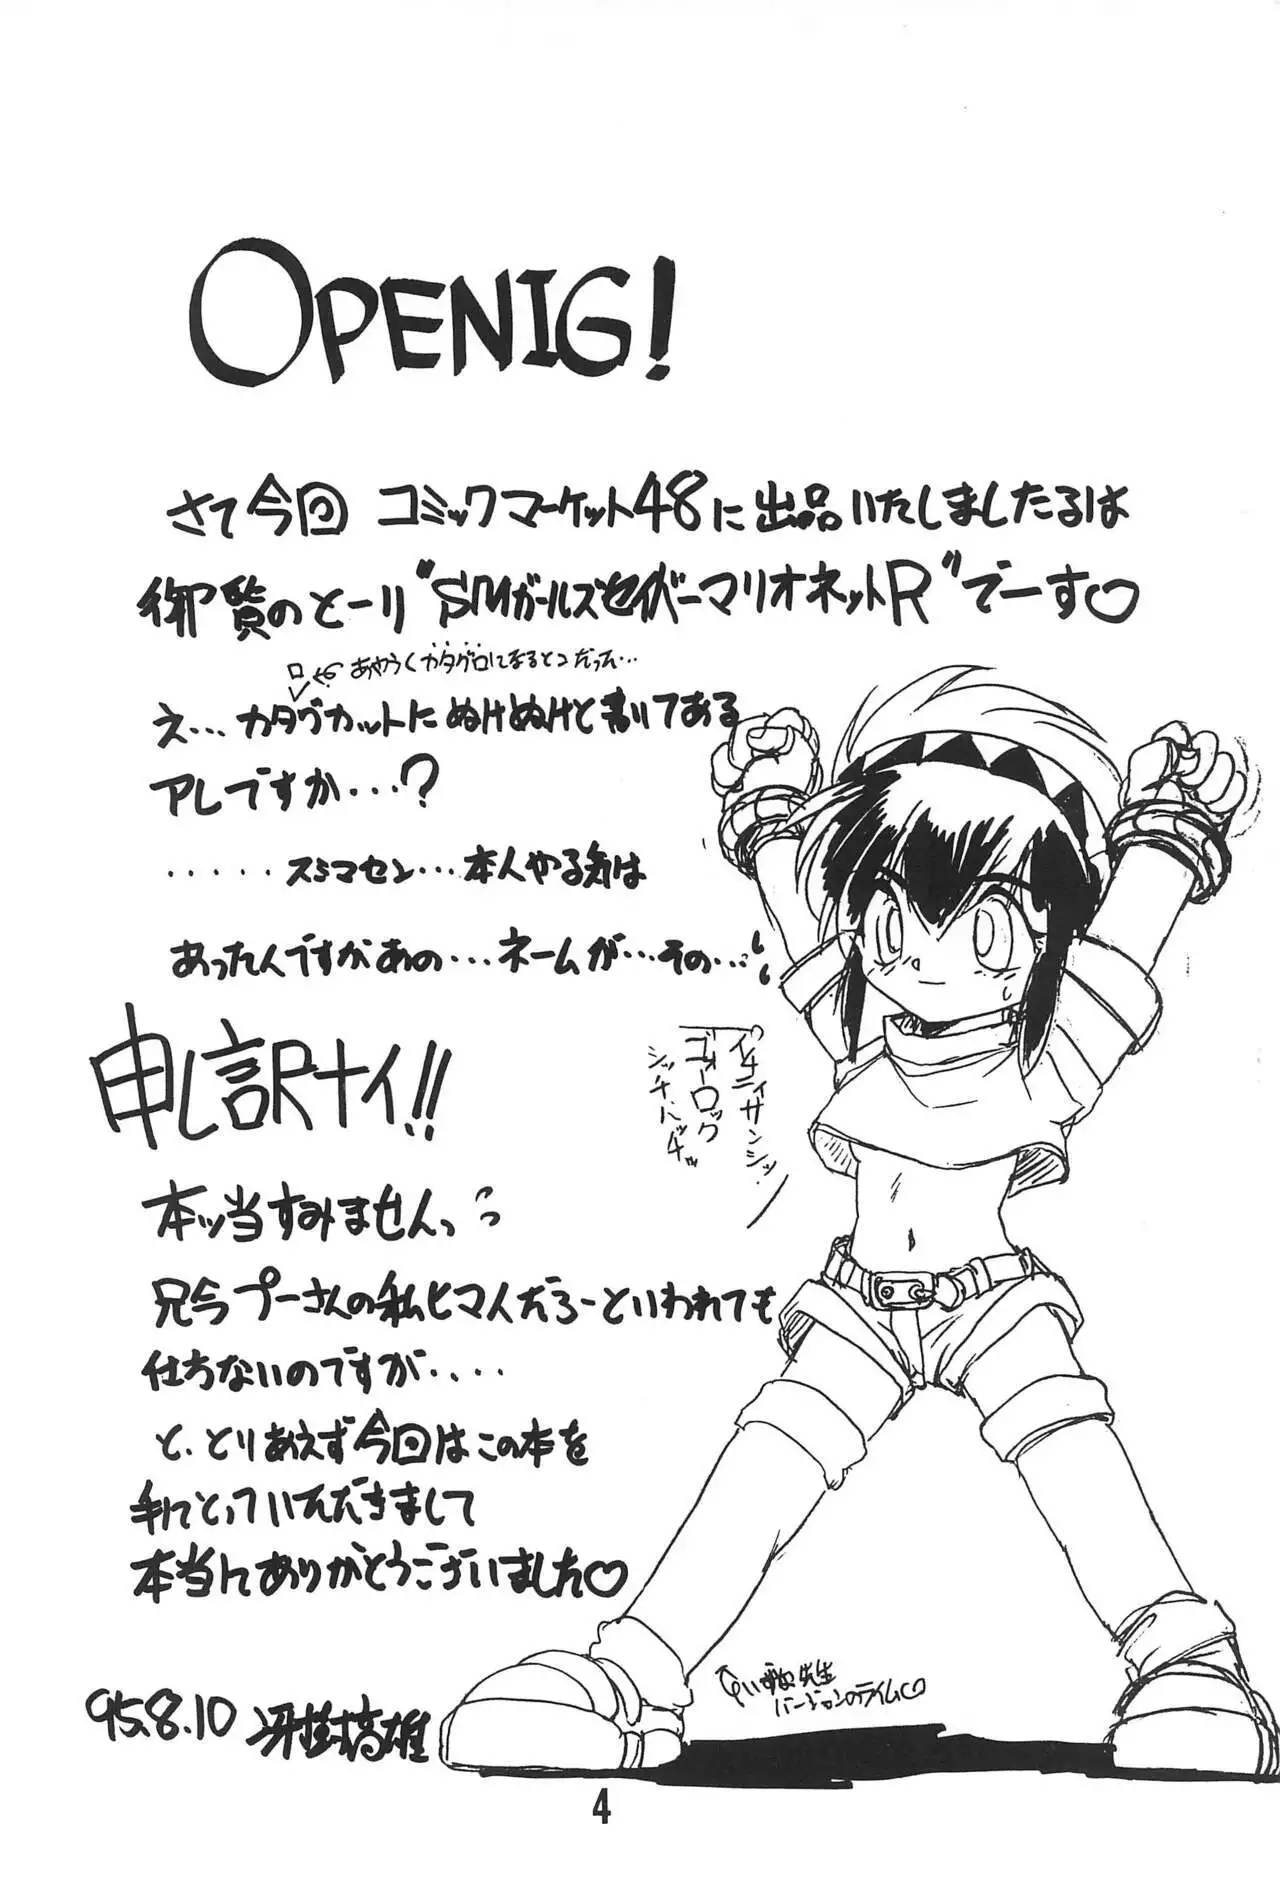 OPENIG!
さて今回 コミックマーケット48に出品いたしましたるは
御覧のとーり“SMガールズセイバーマリオネットR”でーす♡
ロ ←あやうくカタグロになるとこだった…
え…カタグカットにぬけぬけと書いてある
アレですか…?
.....スミマセン…本人やる気は
あったんですがあの…ネームが…その…
申し訳ナイ!!
本ッ当すみませんっ
兄今プーさんの私ヒマ人だろーといわれても
仕ちないのですが....
と、とりあえず今回はこの本を
手にとっていただきまして
本当にありがとうございました♡
イチニィサンシッ
ゴォーロック
シッチ、ハッチッ
先生
バージョンのライム♡
95.8.10 冴樹高雄
4